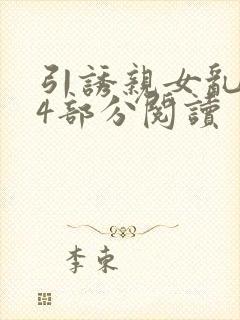 引誘親女亂
4部分閱讀
李東